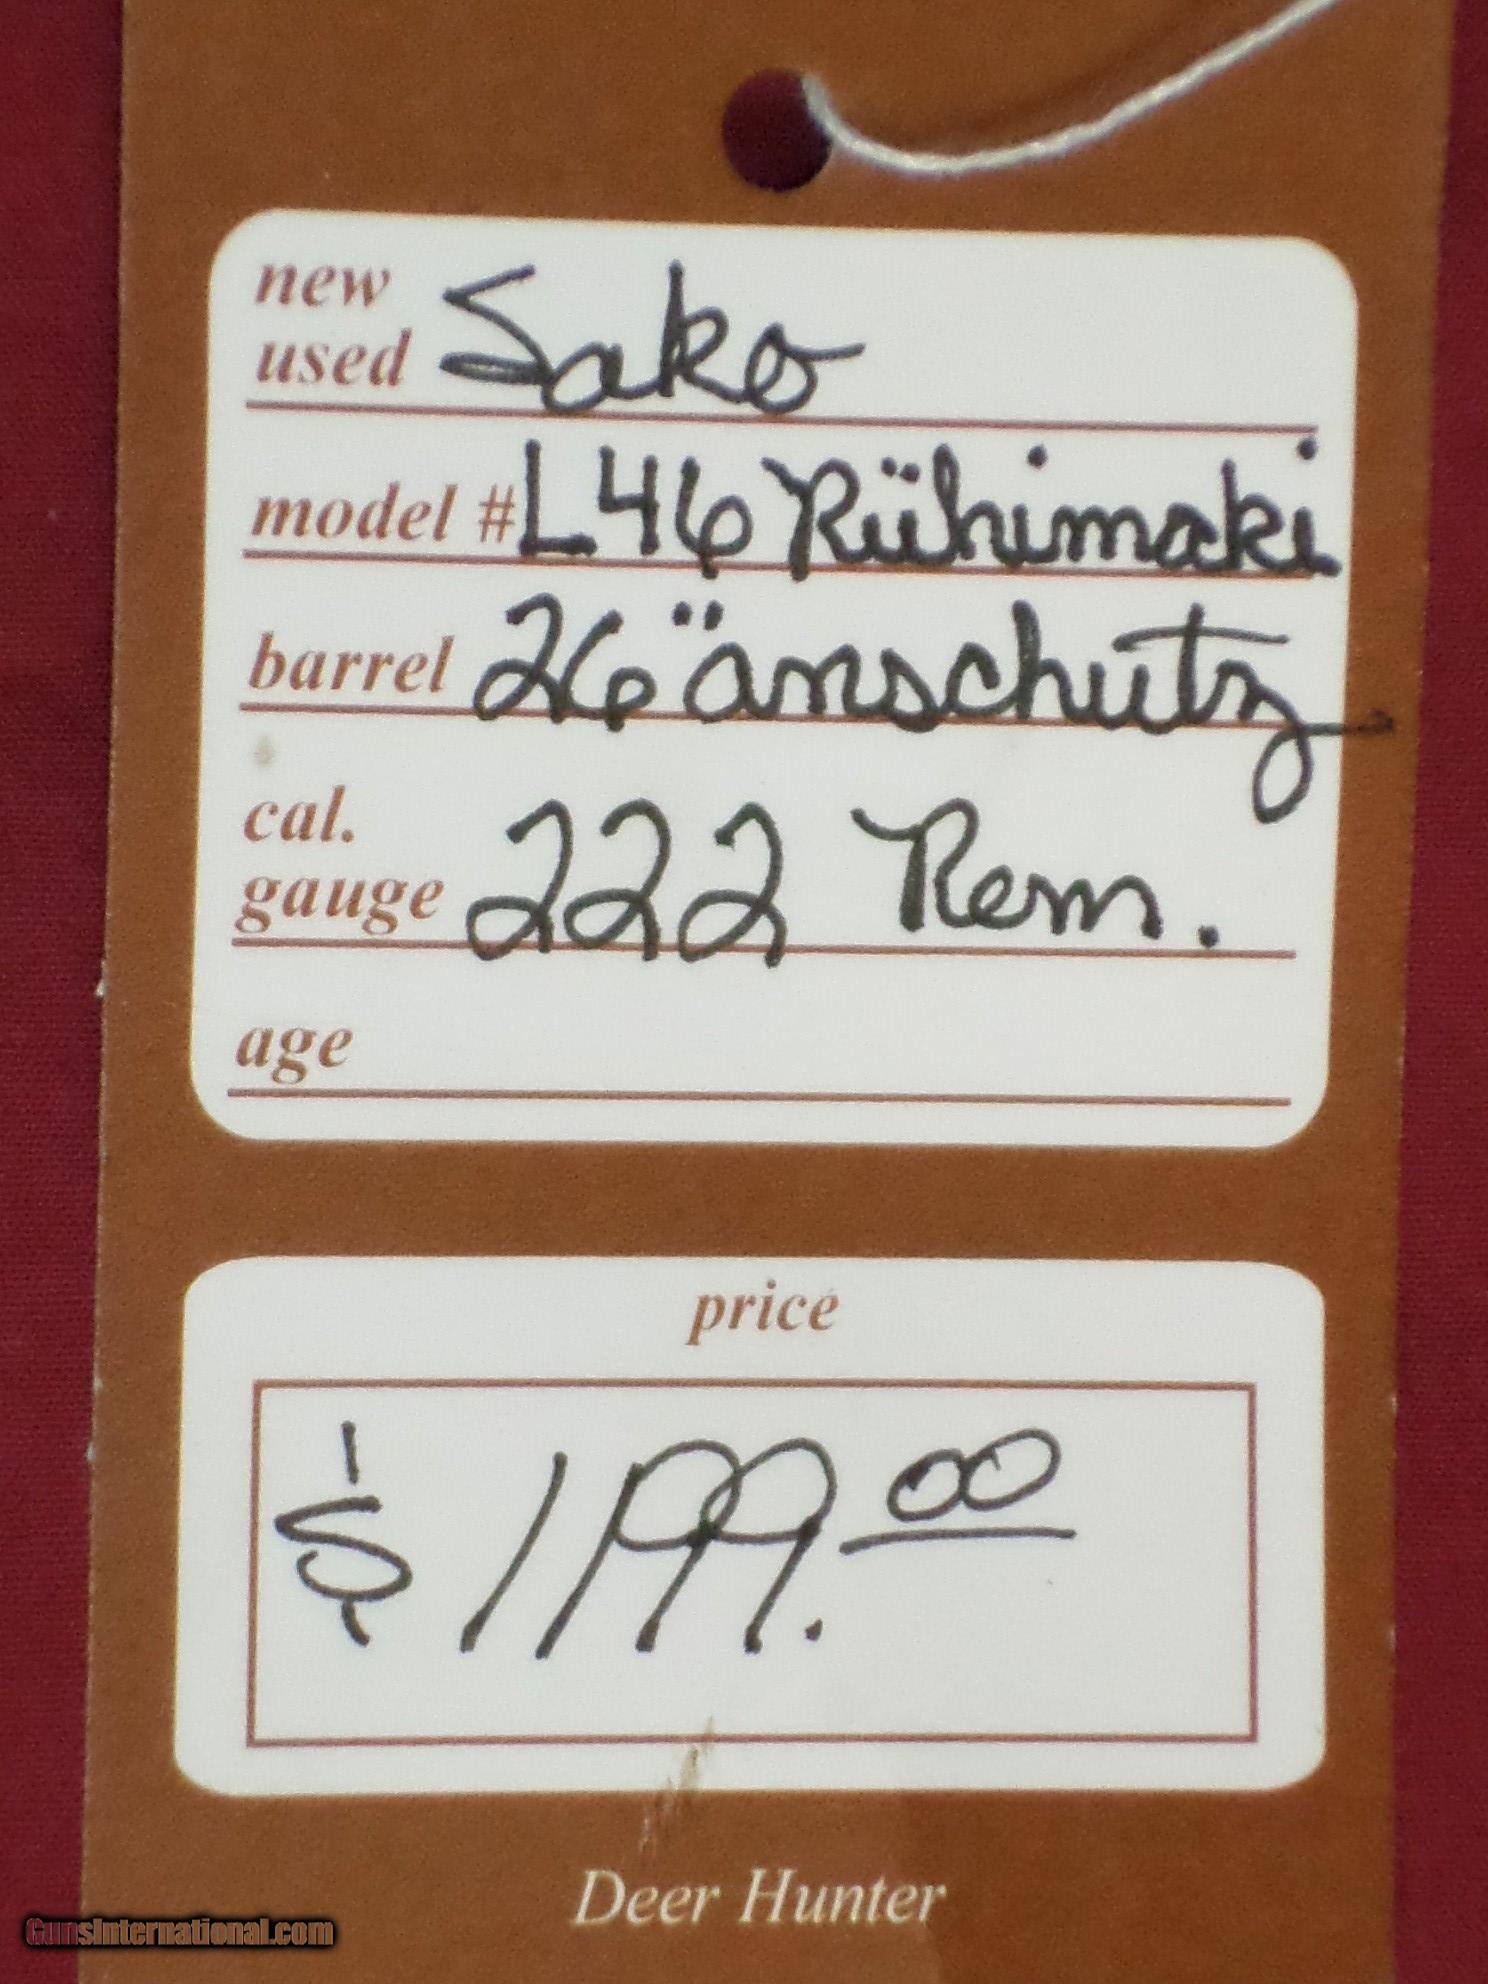 new
used Sako
model # L46 Riihimaki
barrel 26" anschutz
cal.
gauge 222 Rem.
age
price
$ 1199.00
Deer Hunter
GunsInternational.com